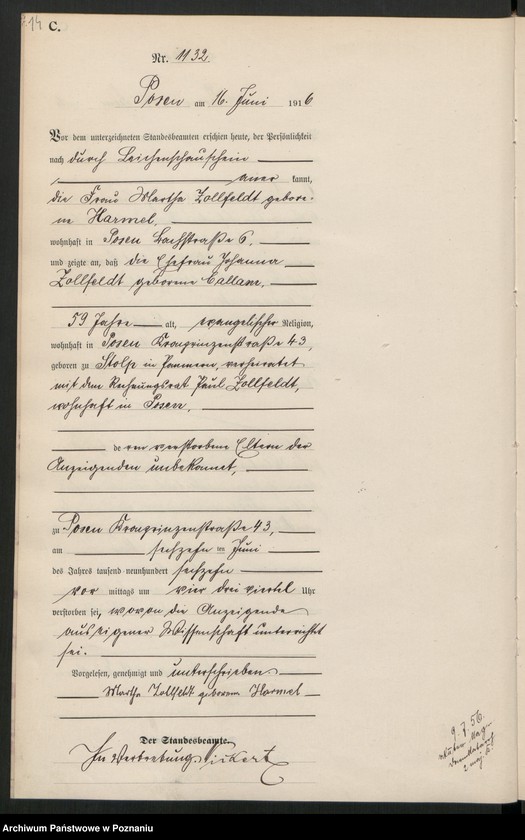 14 C.
Nr. 1132.
Posen am 16. Juni 1916
Vor dem unterzeichneten Standesbeamten erschien heute, der Persönlichkeit
nach durch Leichenschauschein
aner kannt,
die Frau Martha Zollfeldt gebore-
ne Harmel,
wohnhaft in Posen Bachstraße 6,
und zeigte an, daß die Ehefrau Johanna
Zollfeldt geborene
59 Jahre alt, evangelischer Religion,
wohnhaft in Posen Kronprinzenstraße 43,
geboren zu Stolp in Pommern, verheiratet
mit dem Rechnungsrat Paul Zollfeldt,
wohnhaft in Posen,
de ren verstorbene Eltern der
Anzeigenden unbekannt,
zu Posen Kronprinzenstraße 43,
am sechzehn ten Juni
des Jahres tausend neunhundert sechzehn
vor mittags um vier drei viertel Uhr
verstorben sei, wovon die Anzeigende
aus eigener Wissenschaft unterrichtet
sei.
Vorgelesen, genehmigt und unterschrieben
Martha Zollfeldt geborene Harmel
Der Standesbeamte.
In Vertretung Sickert
9.7.56
Archiwum Państwowe w Poznaniu